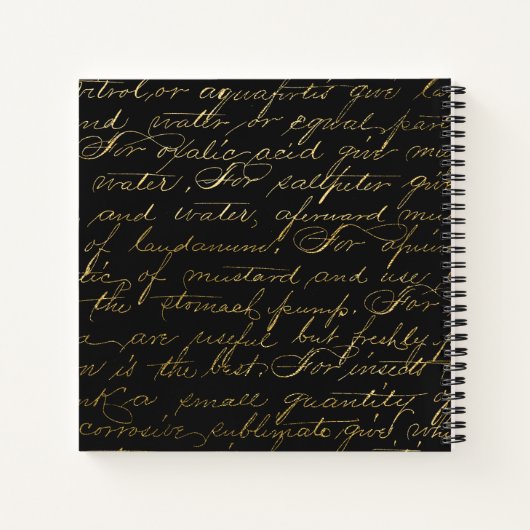 vitrol, or aquafortis give la
nd water or equal par
For oxalic acid give mu
water. For saltpeter giv
and water, aferward mu
of laudanum. For opiu
tic of mustard and use
the stomach pump. For
a are useful but freshly
n is the best. For insect
nk a small quantity of
corrosive sublimate give whi